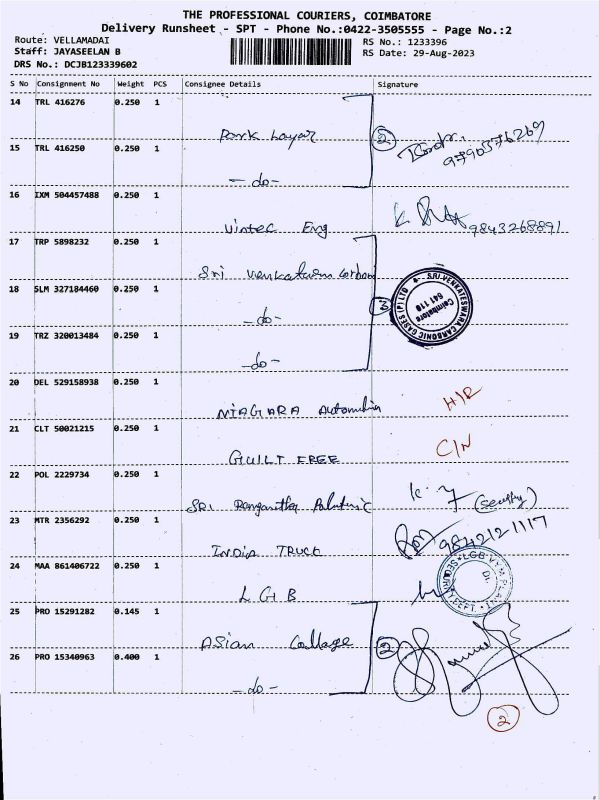 THE PROFESSIONAL COURIERS, COIMBATORE
Delivery Runsheet - SPT - Phone No.:0422-3505555 - Page No.:2
Route: VELLAMADAI
RS No.: 1233396
Staff: JAYASEELAN B
RS Date: 29-Aug-2023
DRS No.: DCJB123339602
S No Consignment No Weight PCS Consignee Details Signature
14 TRL 416276 0.250 1
Park Layar
②
15 TRL 416250 0.250 1
9790576269
- do -
16 IXM 504457488 0.250 1
9843268891
Vintec Eng
17 TRP 5898232 0.250 1
Sri Venkateswa Carbon
18 SLM 327184460 0.250 1
③
SRI VENKATESWARA CARBONIC GASES (P) LTD
Coimbatore
641 110
- do -
19 TRZ 320013484 0.250 1
- do -
20 DEL 529158938 0.250 1
H/R
NIAGARA
21 CLT 50021215 0.250 1
C/N
GUILT FREE
22 POL 2229734 0.250 1
K. (security)
SRI Ranganatha
23 MTR 2356292 0.250 1
9842121117
INDIA TRUCK
24 MAA 861406722 0.250 1
LGB
SECURITY DEPT.
25 PRO 15291282 0.145 1
Asian College
②
26 PRO 15340963 0.400 1
- do -
②